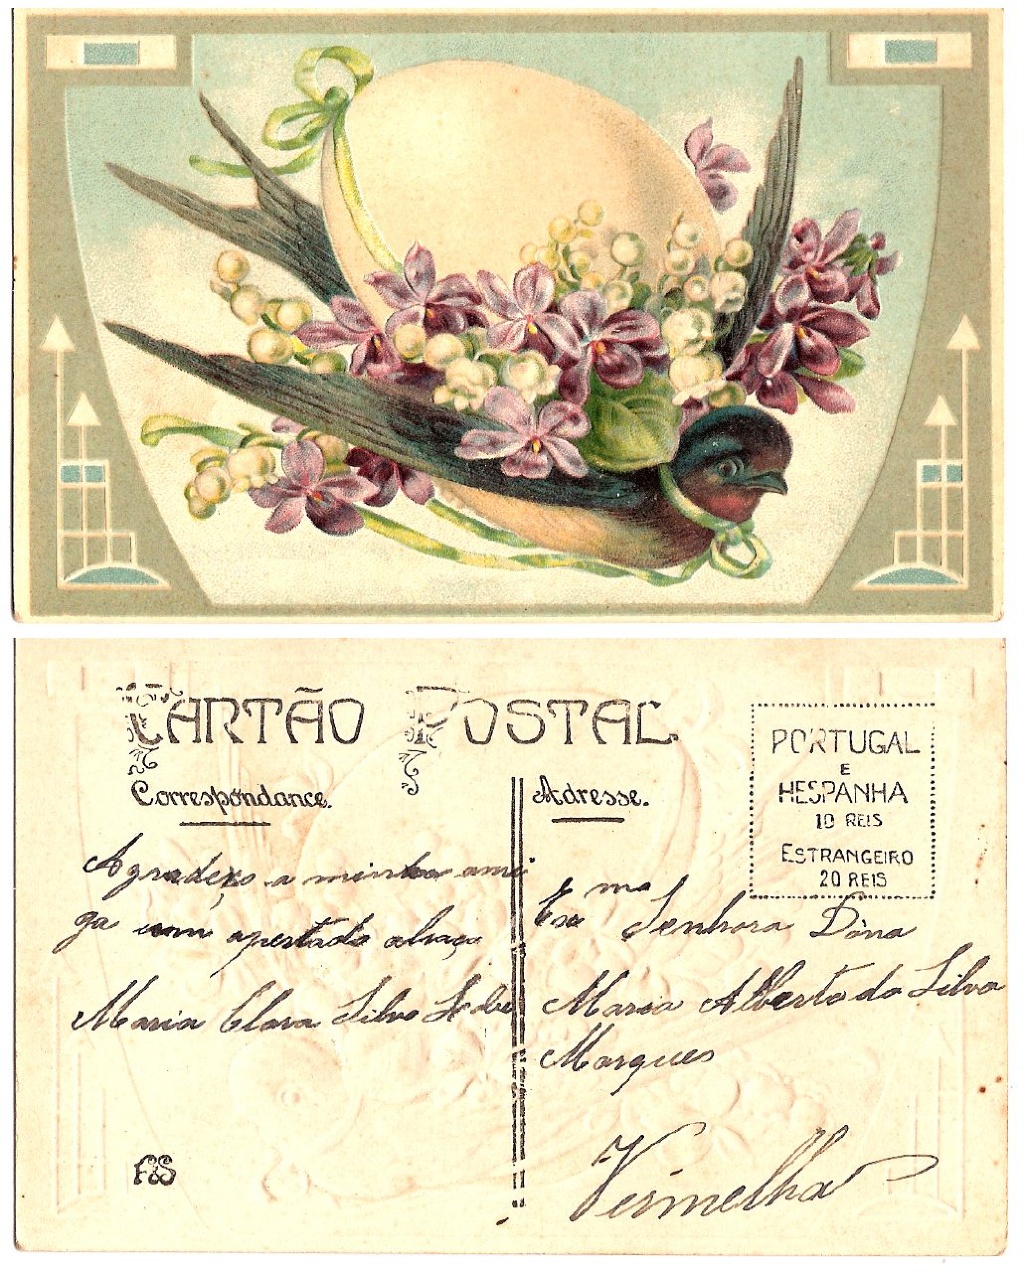 CARTÃO POSTAL
Correspondance.
Adresse.
PORTUGAL
E
HESPANHA
10 REIS
ESTRANGEIRO
20 REIS
Agradeço a minha ami
ga um apertado abraço
Maria Clara Silva
Exma Senhora Dona
Maria Alberto da Silva
Marques
Vermelha
F&S